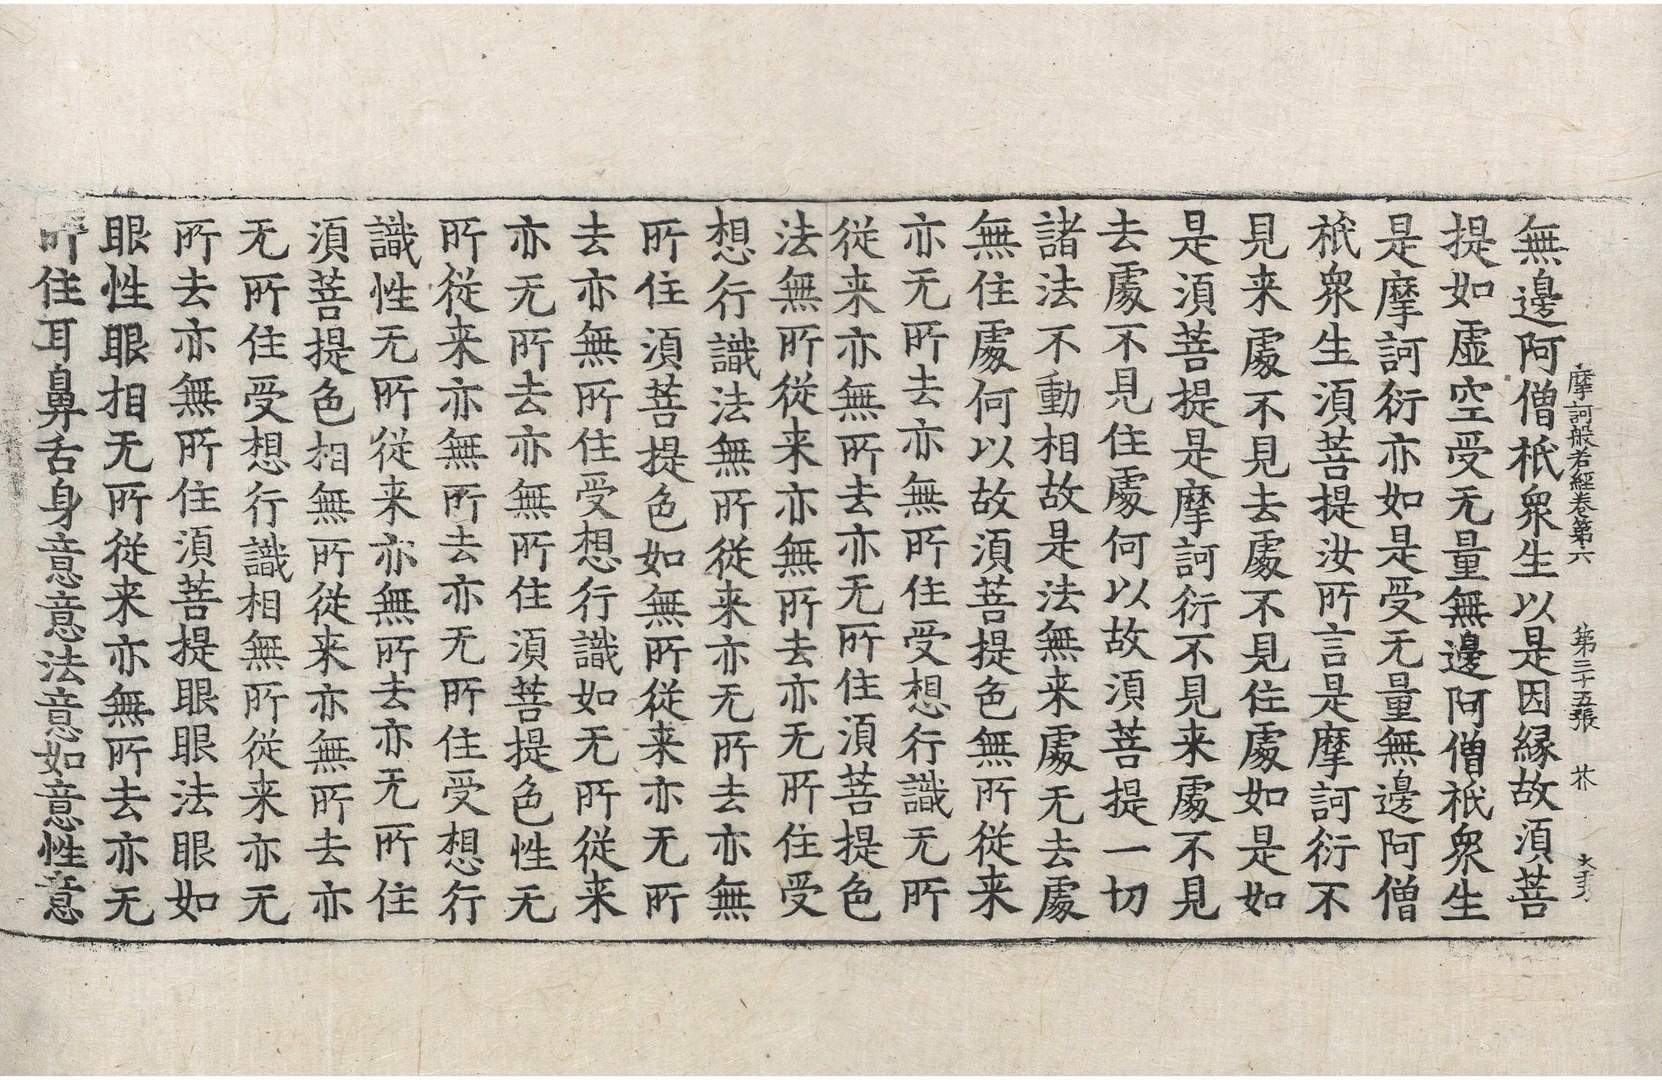 摩訶般若經卷第六 第三十五張 芥 大才
無邊阿僧祇衆生以是因縁故湏菩
提如虛空受无量無邊阿僧祇衆生
是摩訶衍亦如是受无量無邊阿僧
祇衆生湏菩提汝所言是摩訶衍不
見来處不見去處不見住處如是如
是湏菩提是摩訶衍不見来處不見
去處不見住處何以故湏菩提一切
諸法不動相故是法無来處无去處
無住處何以故湏菩提色無所從来
亦无所去亦無所住受想行識无所
從来亦無所去亦无所住湏菩提色
法無所從来亦無所去亦无所住受
想行識法無所從来亦无所去亦無
所住湏菩提色如無所從来亦无所
去亦無所住受想行識如无所從来
亦无所去亦無所住湏菩提色性无
所從来亦無所去亦无所住受想行
識性无所從来亦無所去亦无所住
湏菩提色相無所從来亦無所去亦
无所住受想行識相無所從来亦无
所去亦無所住湏菩提眼眼法眼如
眼性眼相无所從来亦無所去亦无
所住耳鼻舌身意意法意如意性意